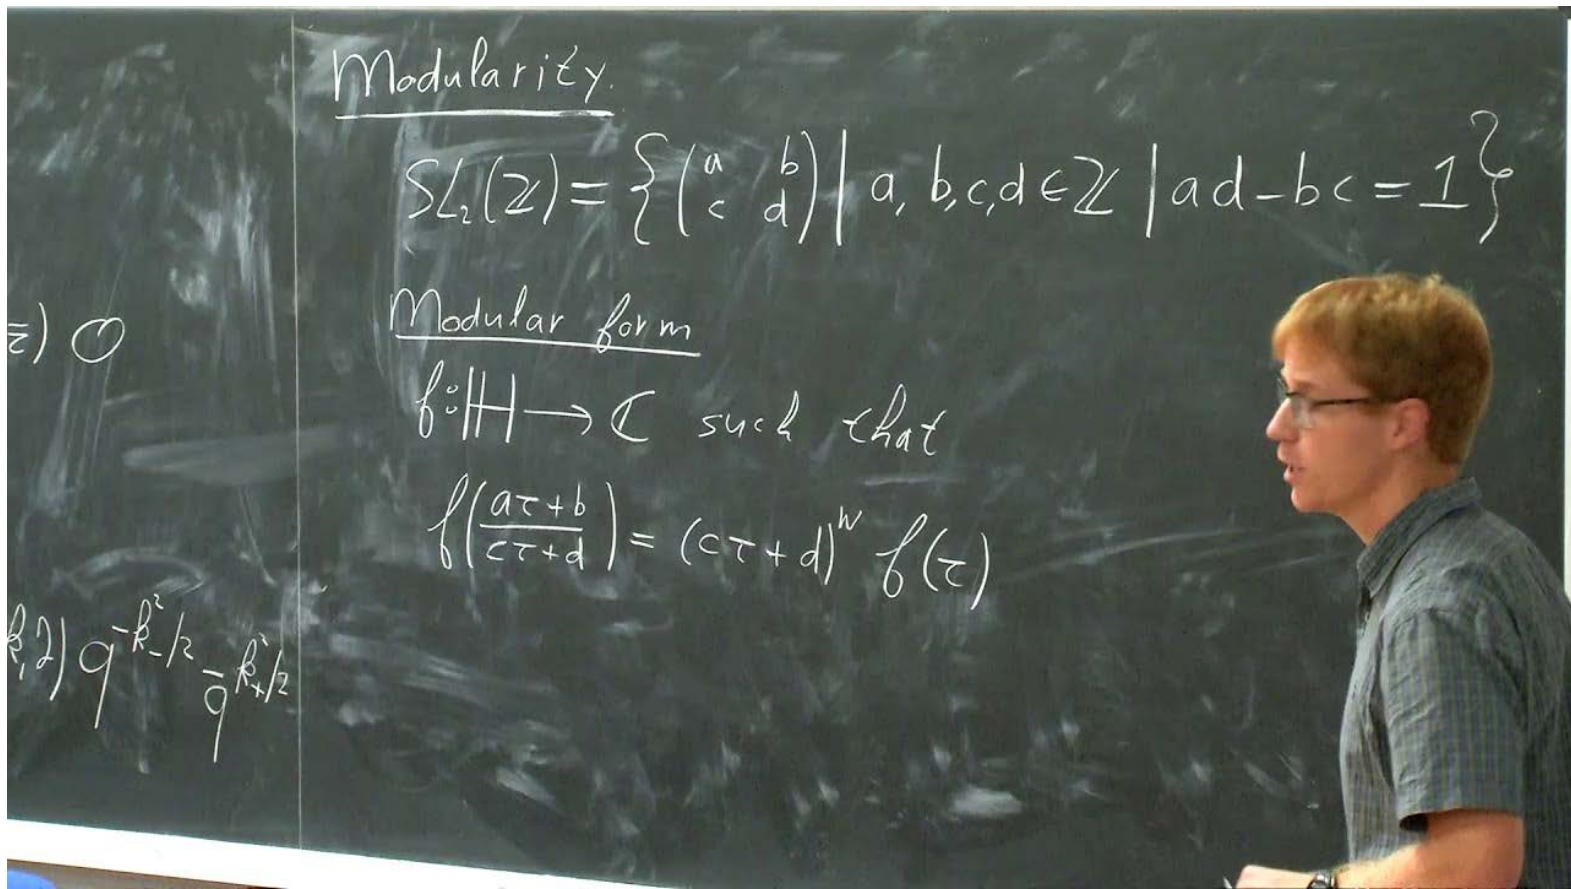 Modularity.
SL₂(ℤ) = {(a b / c d) | a, b, c, d ∈ ℤ | ad - bc = 1}
Modular form
f: ℍ → ℂ such that
f((aτ + b)/(cτ + d)) = (cτ + d)^w f(τ)
) q^{-k₋²/2} q̄^{k₊²/2}